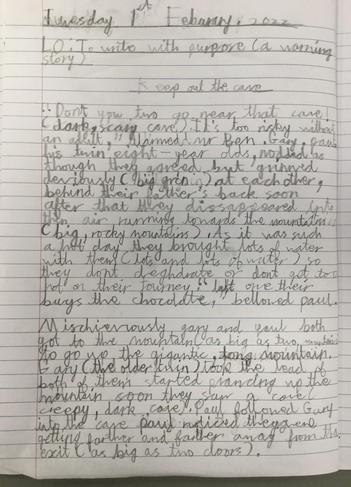 Tuesday 1st Febuary, 2022
LO: To write with purpose (a warning
story)
Keep out the cave
"Dont you two go near that cave!
(dark, scary cave). It's too risky without
an adult," warned Mr Ben. Gary, paul
his twin eight-year olds, nodded as
though they agreed but grinned
deviously (big grin) at each other,
behind their father's back. soon
after that they disappeared into
thin air running towards the mountains
(big, rocky mountains). As it was such
a hot day they brought lots of water
with them (lots and lots of water) so
they dont deghdrate or dont got to
hot on their journey. "last one their
buys the chocolate," bellowed paul.
Mischieviously gary and paul both
got to the mountain as big as two
to go up the gigantic, long mountain.
Gary (the older twin) took the lead of
both of them started up the
mountain soon they saw a cave!
creepy, dark cave. Paul followed Gary
into the cave paul noticed they were
getting farther and farther away from the
exit (as big as two doors).